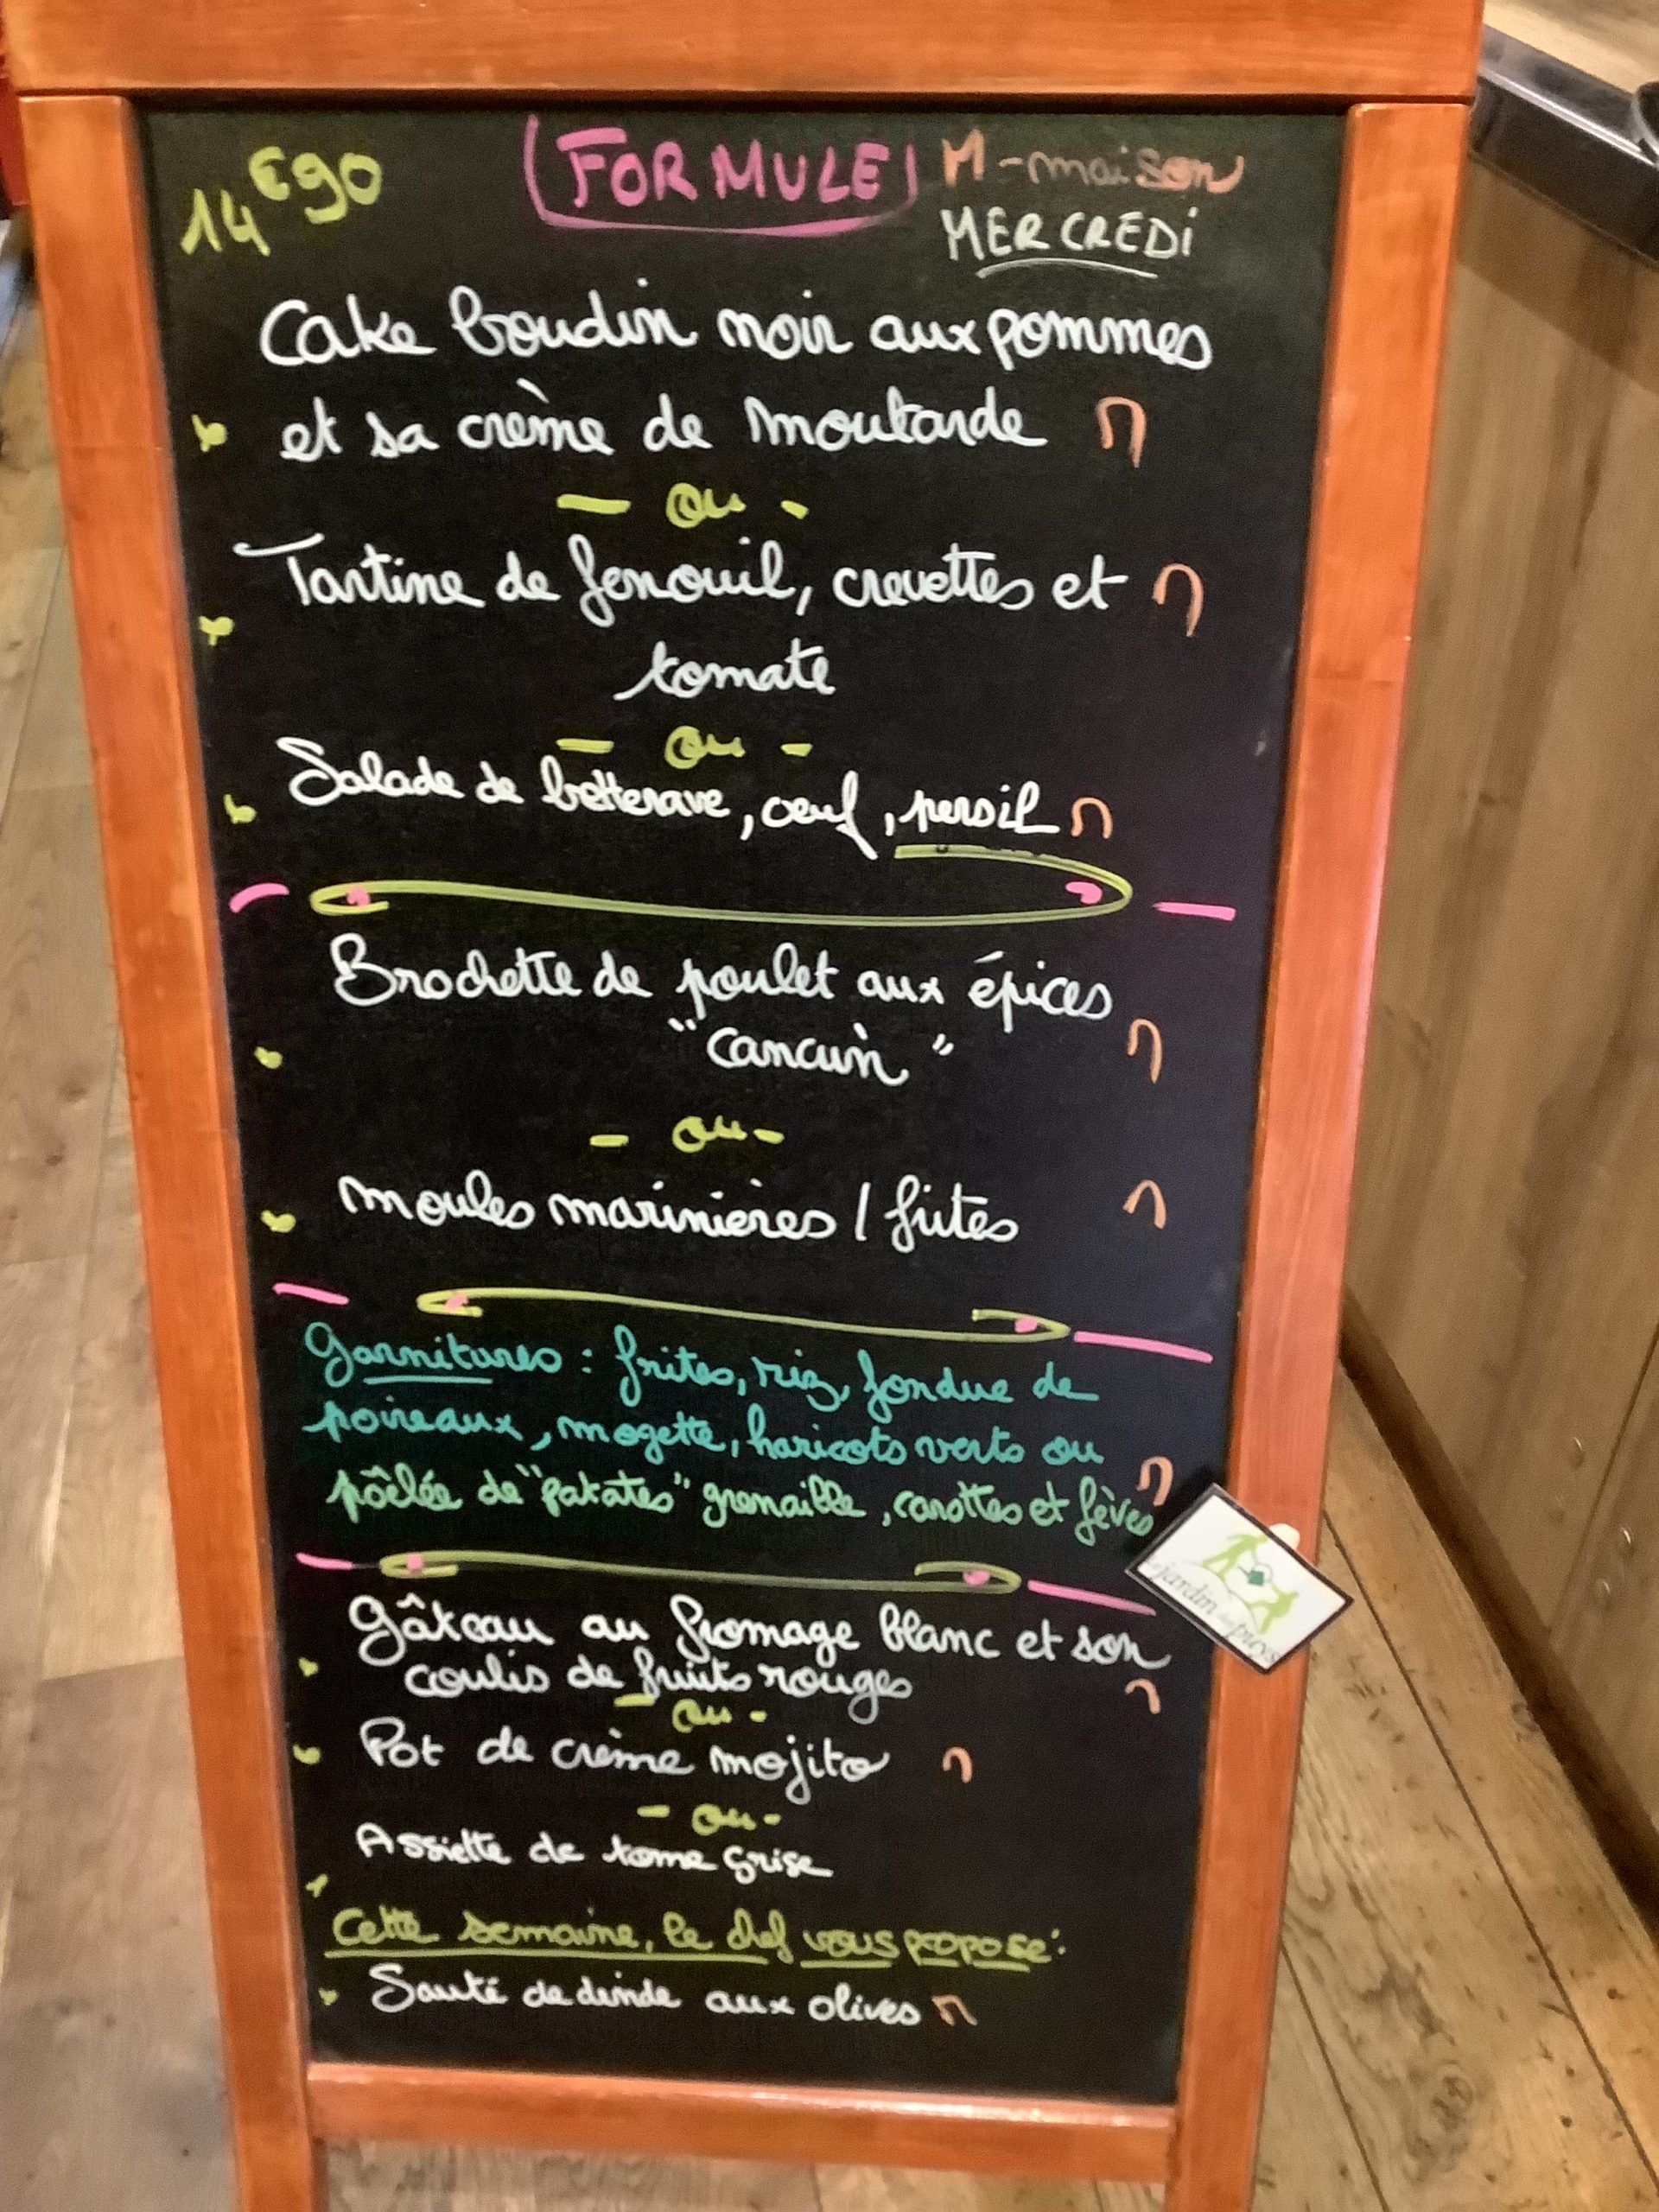 14€90 FORMULE M-maison
MERCREDI
Cake boudin noir aux pommes
et sa crème de moutarde M
- ou -
Tartine de fenouil, crevettes et M
tomate
- ou -
Salade de betterave, oeuf, persil M
Brochette de poulet aux épices
"Cancùn" M
- ou -
Moules marinières / frites M
Garnitures : frites, riz, fondue de
poireaux, mogette, haricots verts ou
pôêlée de "patates" grenaille, carottes et fèves M
le jardin des pucys
Gâteau au fromage blanc et son
coulis de fruits rouges M
- ou -
Pot de crème mojito M
- ou -
Assiette de tome grise
Cette semaine, le chef vous propose :
Sauté de dinde aux olives M